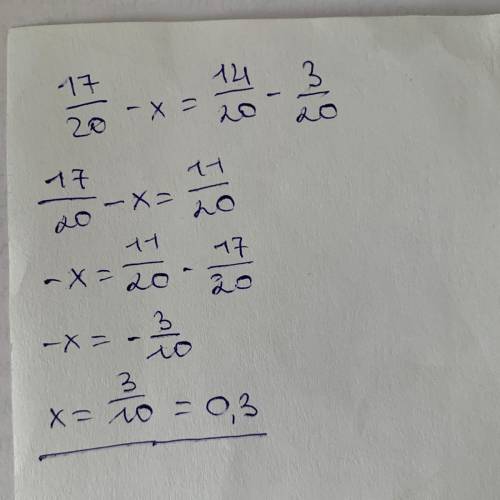 17/20 - x = 14/20 - 3/20
17/20 - x = 11/20
-x = 11/20 - 17/20
-x = - 3/10
x = 3/10 = 0,3